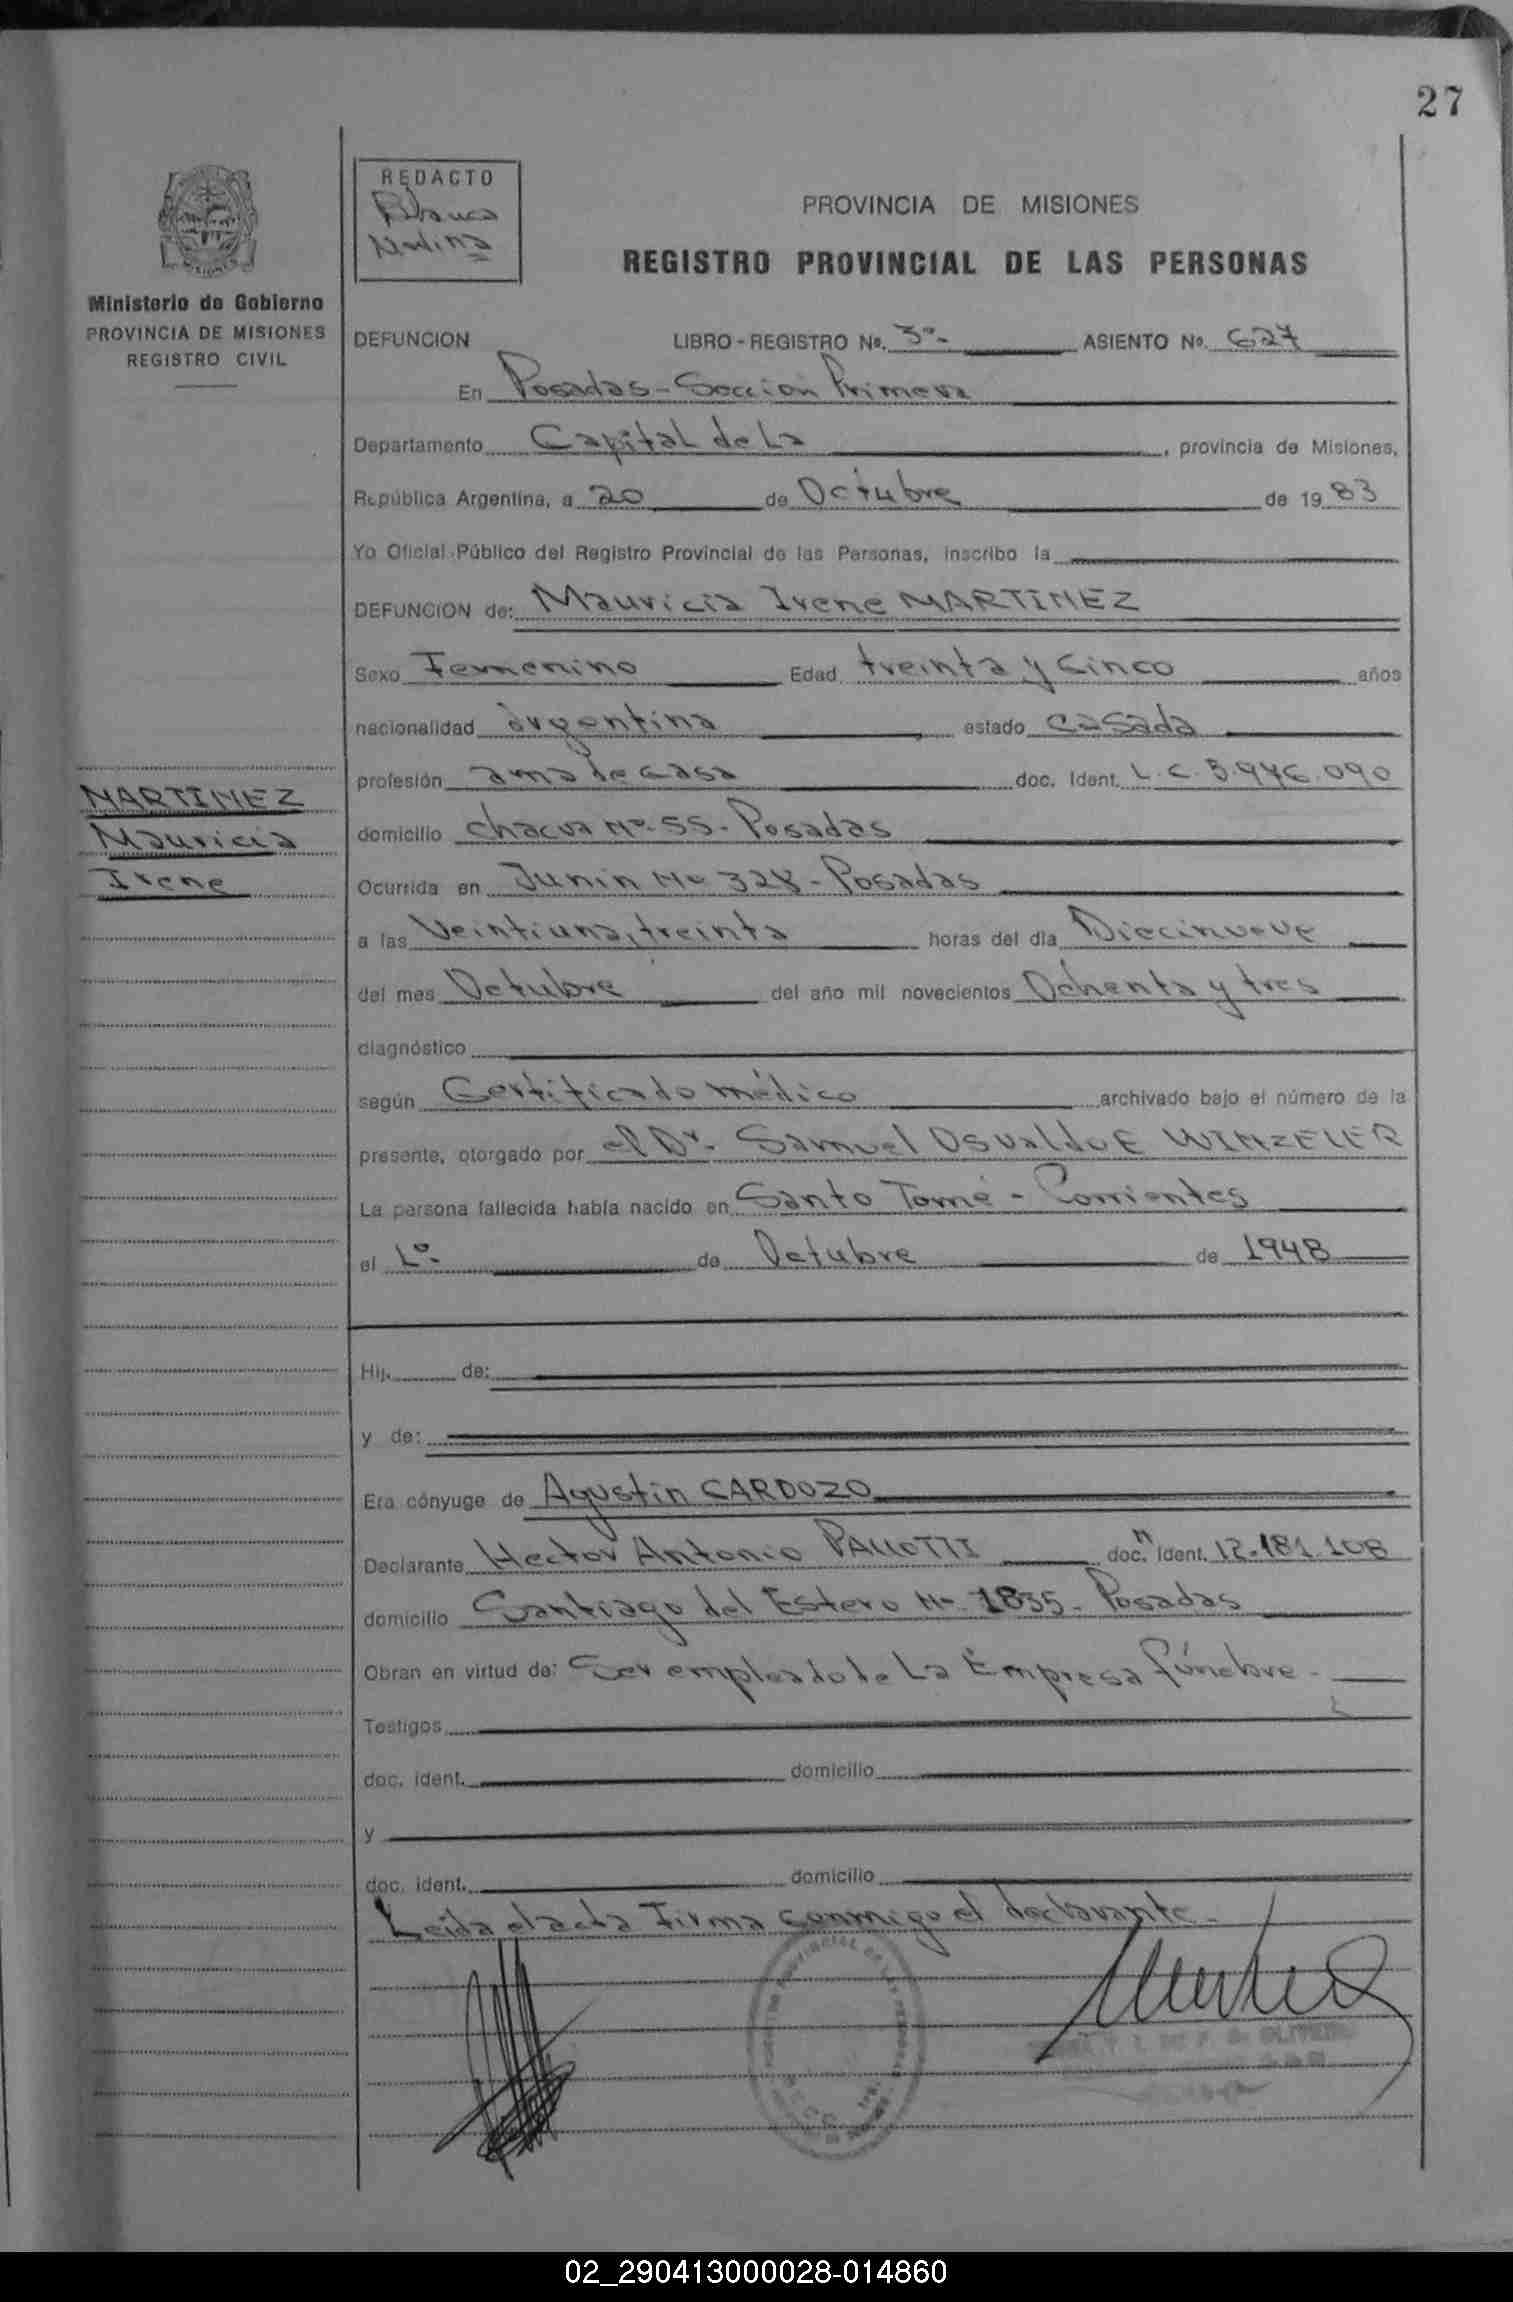 27
REDACTO
Blanca
PROVINCIA DE MISIONES
REGISTRO PROVINCIAL DE LAS PERSONAS
Ministerio de Gobierno
PROVINCIA DE MISIONES
REGISTRO CIVIL
DEFUNCION LIBRO - REGISTRO No. 3º- ASIENTO No. 627
En Posadas - Sección Primera
Departamento Capital de La , provincia de Misiones,
República Argentina, a 20 de Octubre de 19 83
Yo Oficial Público del Registro Provincial de las Personas, inscribo la
DEFUNCION de: Mauricia Irene MARTINEZ
Sexo Femenino Edad treinta y cinco años
nacionalidad argentina estado casada
profesión ama de casa doc. Ident. L.C. 5.946.090
MARTINEZ
Mauricia
Irene
domicilio chacra Nº 55 - Posadas
Ocurrida en Junín Nº 328 - Posadas
a las Veintiuna, treinta horas del día Diecinueve
del mes Octubre del año mil novecientos Ochenta y tres
diagnóstico
según Certificado médico archivado bajo el número de la
presente, otorgado por el Dr. Samuel Osvaldo E WINZELER
La persona fallecida había nacido en Santo Tomé - Corrientes
el 1º. de Octubre de 1948
Hij. de:
y de:
Era cónyuge de Agustín CARDOZO
Declarante Hector Antonio doc. Ident. 12.181.108
domicilio Santiago del Estero Nº 1835 - Posadas
Obran en virtud de: Ser empleado de La Empresa fúnebre -
Testigos
doc. ident. domicilio
y
doc. ident. domicilio
Leída el acta Firma conmigo el declarante.
02_290413000028-014860